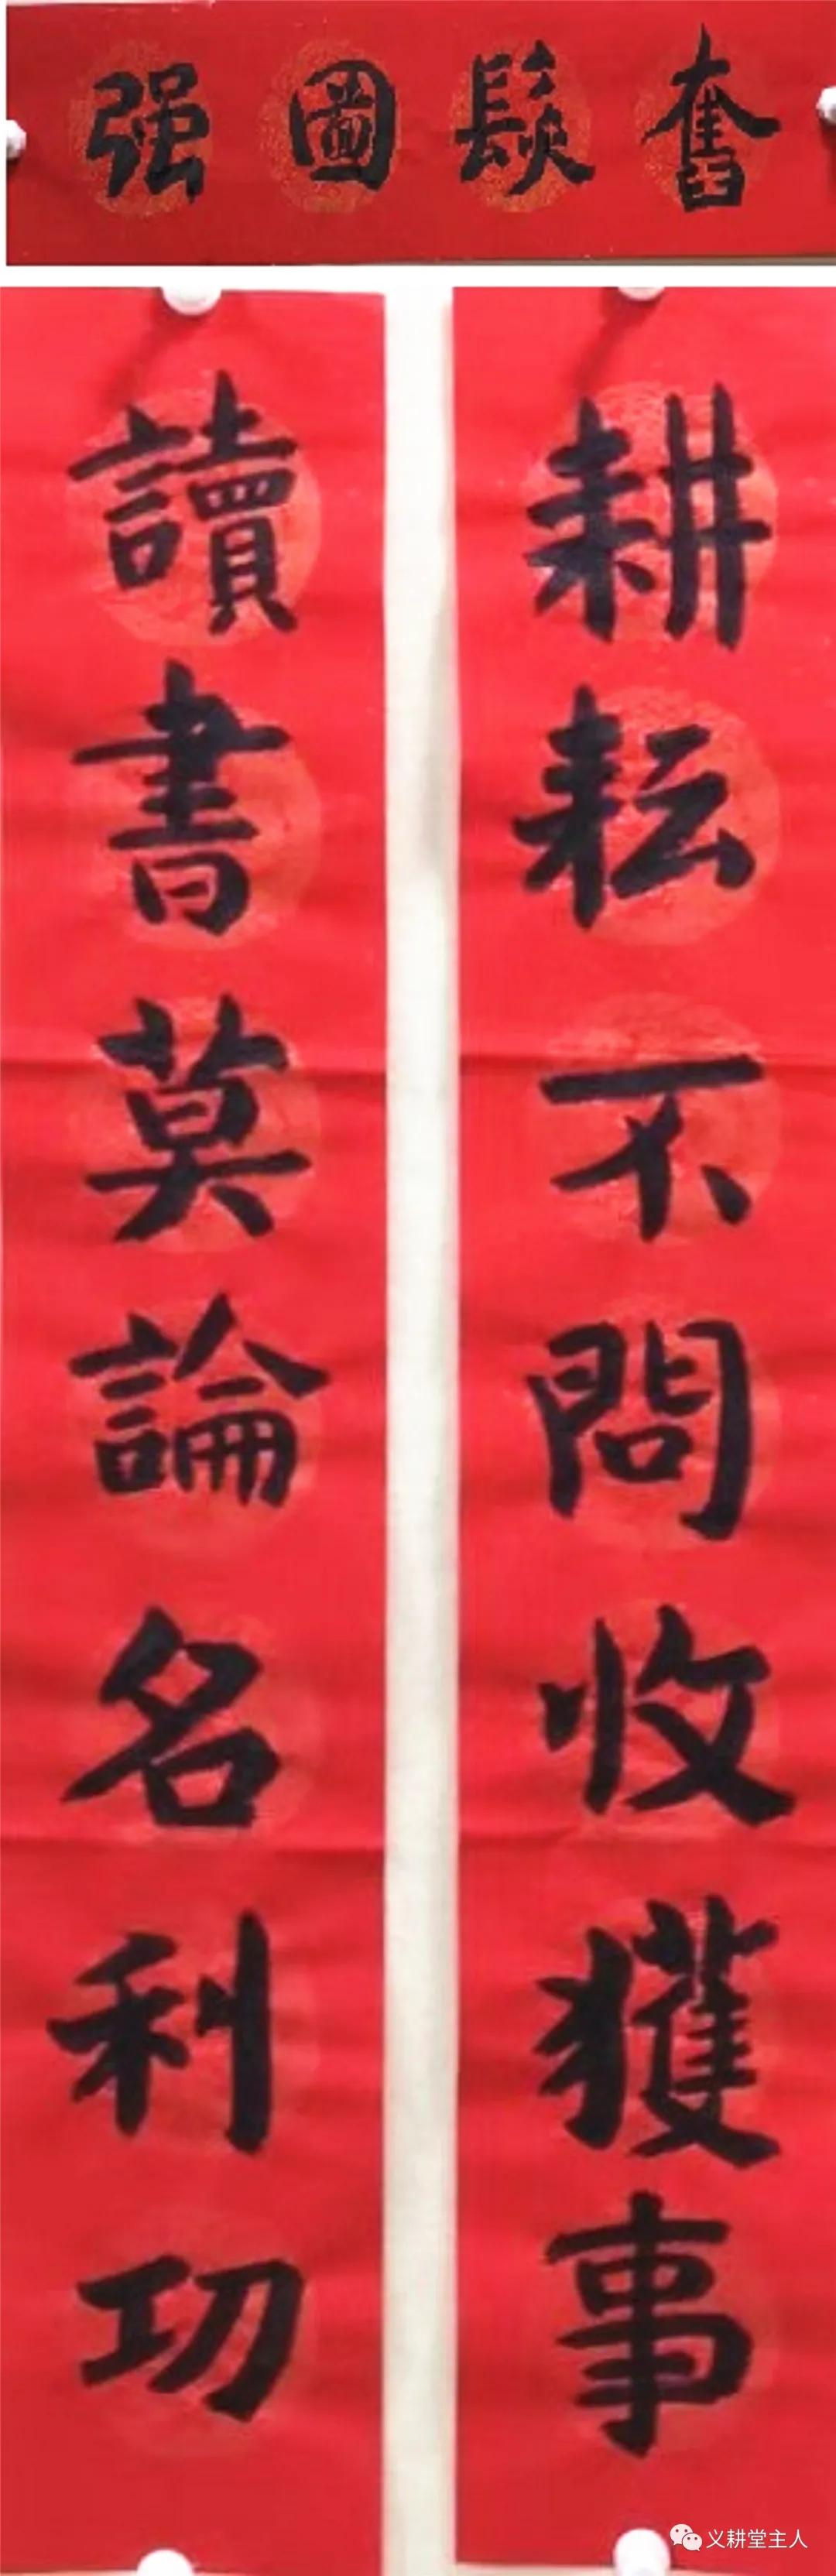 奮髮圖强
耕耘不問收獲事
讀書莫論名利功
义耕堂主人